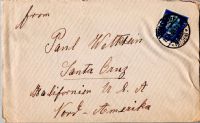 from
Paul Wettstein
Santa Cruz
Californien U.S.A
Nord-Amerika